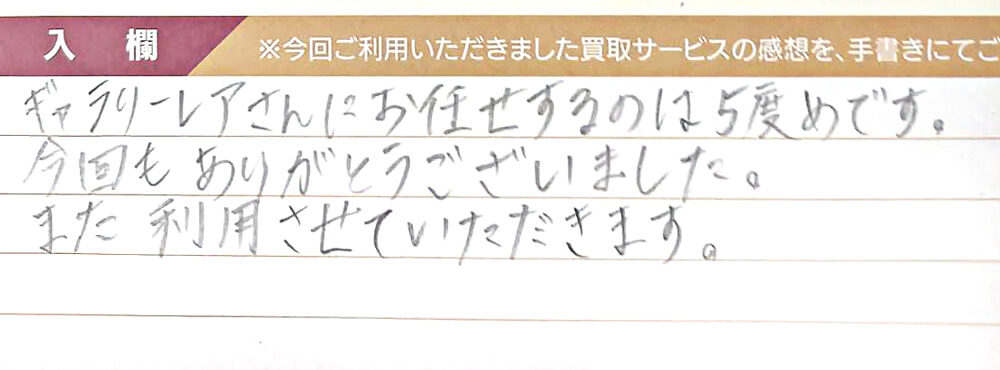 入 欄
※今回ご利用いただきました買取サービスの感想を、手書きにてご
ギャラリーレアさんにお任せするのは5度めです。
今回も ありがとうございました。
また 利用させていただきます。